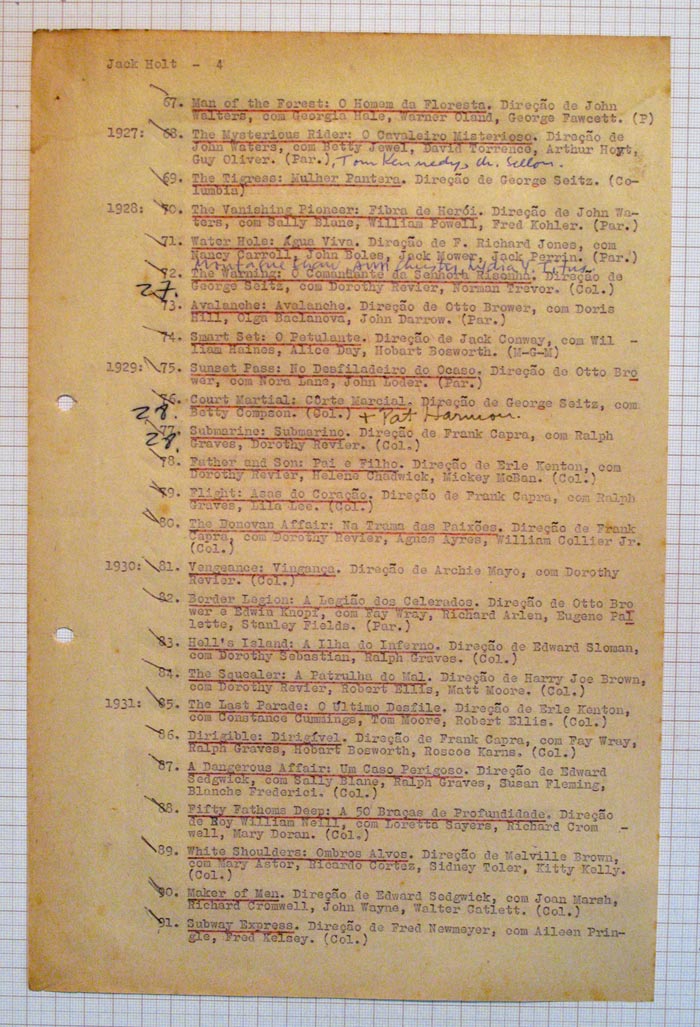 Jack Holt - 4
67. Man of the Forest: O Homem da Floresta. Direção de John
Walters, com Georgia Hale, Warner Oland, George Fawcett. (P)
1927: 68. The Mysterious Rider: O Cavaleiro Misterioso. Direção de
John Waters, com Betty Jewel, David Torrence, Arthur Hoyt,
Guy Oliver. (Par.), Tom Kennedy, de Sellon.
69. The Tigress: Mulher Pantera. Direção de George Seitz. (Co-
lumbia)
1928: 70. The Vanishing Pioneer: Fibra de Herói. Direção de John Wa-
ters, com Sally Blane, William Powell, Fred Kohler. (Par.)
71. Water Hole: Água Viva. Direção de F. Richard Jones, com
Nancy Carroll, John Boles, Jack Mower, Jack Perrin. (Par.)
Montague Shaw, Ann Christy, Lydia Y. Titus
72. The Warning: O Comandante da Senhora Risonha. Direção de
27.
George Seitz, com Dorothy Revier, Norman Trevor. (Col.)
73. Avalanche: Avalanche. Direção de Otto Brower, com Doris
Hill, Olga Baclanova, John Darrow. (Par.)
74. Smart Set: O Petulante. Direção de Jack Conway, com Wil -
liam Haines, Alice Day, Hobart Bosworth. (M-G-M)
1929: 75. Sunset Pass: No Desfiladeiro do Ocaso. Direção de Otto Bro
wer, com Nora Lane, John Loder. (Par.)
76. Court Martial: Côrte Marcial. Direção de George Seitz, com
28. Betty Compson. (Col.) + Pat Harmon.
77. Submarine: Submarino. Direção de Frank Capra, com Ralph
28. Graves, Dorothy Revier. (Col.)
78. Father and Son: Pai e Filho. Direção de Erle Kenton, com
Dorothy Revier, Helene Chadwick, Mickey McBan. (Col.)
79. Flight: Asas do Coração. Direção de Frank Capra, com Ralph
Graves, Lila Lee. (Col.)
80. The Donovan Affair: Na Trama das Paixões. Direção de Frank
Capra, com Dorothy Revier, Agnes Ayres, William Collier Jr.
(Col.)
1930: 81. Vengeance: Vingança. Direção de Archie Mayo, com Dorothy
Revier. (Col.)
82. Border Legion: A Legião dos Celerados. Direção de Otto Bro
wer e Edwin Knopf, com Fay Wray, Richard Arlen, Eugene Pal
lette, Stanley Fields. (Par.)
83. Hell's Island: A Ilha do Inferno. Direção de Edward Sloman,
com Dorothy Sebastian, Ralph Graves. (Col.)
84. The Squealer: A Patrulha do Mal. Direção de Harry Joe Brown,
com Dorothy Revier, Robert Ellis, Matt Moore. (Col.)
1931: 85. The Last Parade: O Último Desfile. Direção de Erle Kenton,
com Constance Cummings, Tom Moore, Robert Ellis. (Col.)
86. Dirigible: Dirigível. Direção de Frank Capra, com Fay Wray,
Ralph Graves, Hobart Bosworth, Roscoe Karns. (Col.)
87. A Dangerous Affair: Um Caso Perigoso. Direção de Edward
Sedgwick, com Sally Blane, Ralph Graves, Susan Fleming,
Blanche Frederici. (Col.)
88. Fifty Fathoms Deep: A 50 Braças de Profundidade. Direção
de Roy William Neill, com Loretta Sayers, Richard Crom -
well, Mary Doran. (Col.)
89. White Shoulders: Ombros Alvos. Direção de Melville Brown,
com Mary Astor, Ricardo Cortez, Sidney Toler, Kitty Kelly.
(Col.)
90. Maker of Men. Direção de Edward Sedgwick, com Joan Marsh,
Richard Cromwell, John Wayne, Walter Catlett. (Col.)
91. Subway Express. Direção de Fred Newmeyer, com Aileen Prin-
gle, Fred Kelsey. (Col.)